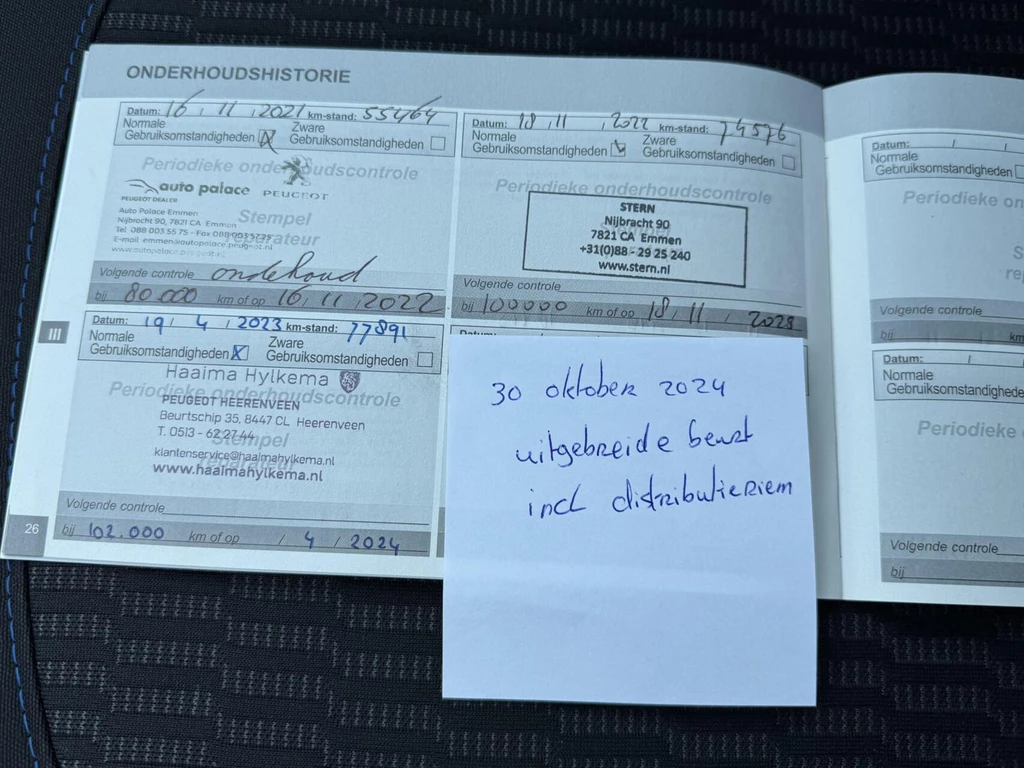 ONDERHOUDSHISTORIE
Datum: 16 / 11 / 2021 km-stand: 55464
Normale Gebruiksomstandigheden ☒ Zware Gebruiksomstandigheden ☐
Periodieke onderhoudscontrole
auto palace PEUGEOT
PEUGEOT DEALER
Auto Palace Emmen
Nijbracht 90, 7821 CA Emmen
Tel. 088 003 55 75 - Fax 088
E-mail emmen@autopalace.peugeot.nl
Stempel
reparateur
Volgende controle ondehoud
bij 80.000 km of op 16 / 11 / 2022
Datum: 18 / 11 / 2022 km-stand: 74576
Normale Gebruiksomstandigheden ☑ Zware Gebruiksomstandigheden ☐
Periodieke onderhoudscontrole
STERN
Nijbracht 90
7821 CA Emmen
+31(0)88 - 29 25 240
www.stern.nl
Volgende controle
bij 100000 km of op 18 / 11 / 2023
III
Datum: 19 / 4 / 2023 km-stand: 77891
Normale Gebruiksomstandigheden ☒ Zware Gebruiksomstandigheden ☐
Haaima Hylkema
Periodieke onderhoudscontrole
PEUGEOT HEERENVEEN
Beurtschip 35, 8447 CL Heerenveen
T. 0513 - 62 27 44
Stempel
klantenservice@haaimahylkema.nl
reparateur
www.haaimahylkema.nl
Volgende controle
bij 102.000 km of op / 4 / 2024
26
Datum:
30 oktober 2024
uitgebreide beurt
incl distributieriem
Datum: / /
Normale
Gebruiksomstandigheden
Periodieke on
S
rep
Volgende controle
bij km
Datum: /
Normale
Gebruiksomstandighede
Periodieke
Volgende controle
bij